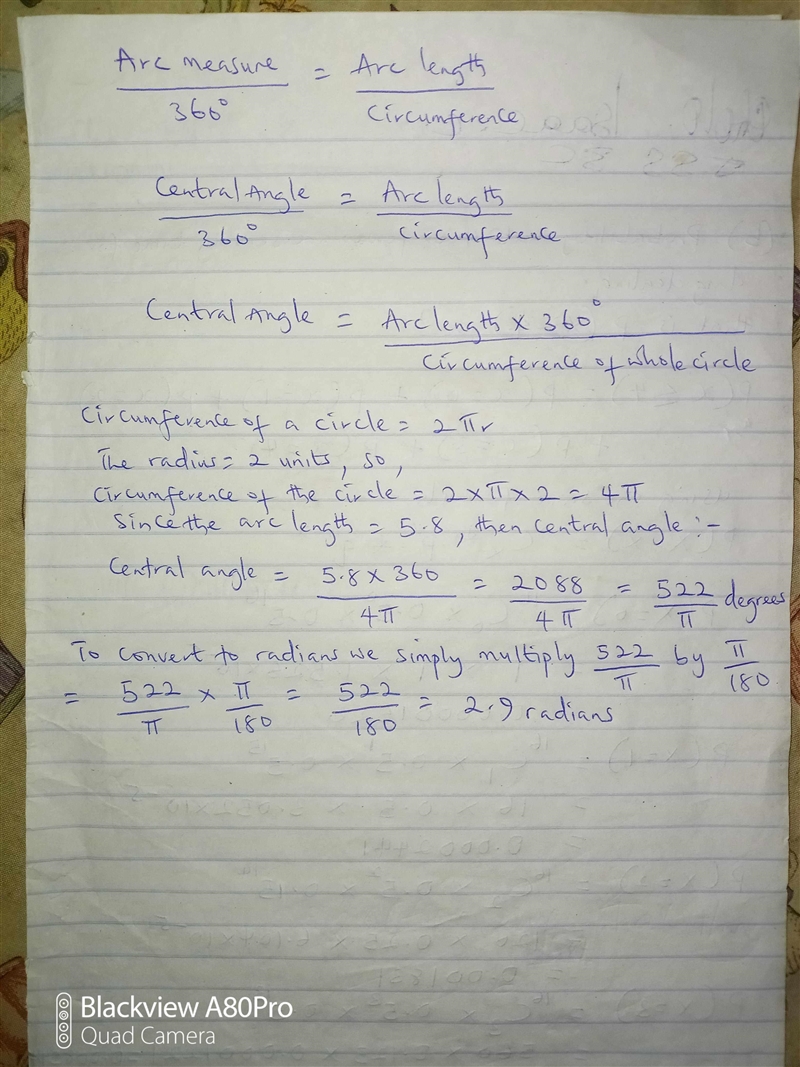 Arc measure = Arc length
360° Circumference
Central Angle = Arc length
360° Circumference
Central Angle = Arc length × 360°
Circumference of whole circle
Circumference of a circle = 2πr
The radius = 2 units, so,
Circumference of the circle = 2×π×2 = 4π
Since the arc length = 5.8, then central angle :-
Central angle = 5.8 × 360 = 2088 = 522 degrees
4π 4π π
To convert to radians we simply multiply 522/π by π/180
= 522/π × π/180 = 522/180 = 2.9 radians
Blackview A80Pro
Quad Camera